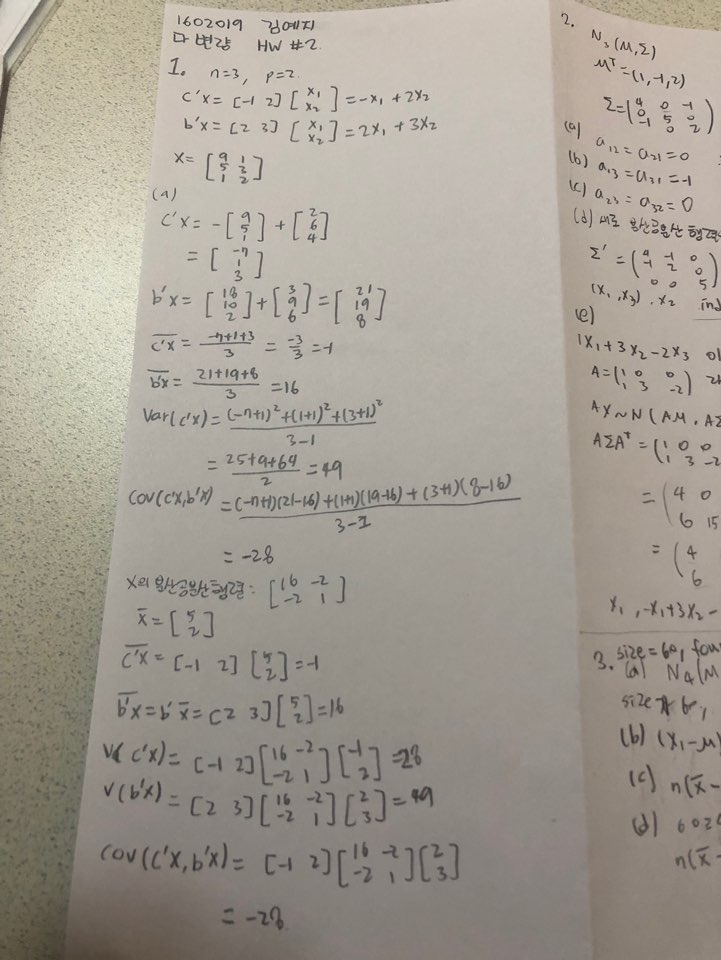 1602019 김예지
다변량 HW #2.
1. n=3, p=2
c'x = [-1 2] [x₁ x₂] = -x₁ + 2x₂
b'x = [2 3] [x₁ x₂] = 2x₁ + 3x₂
X = [9 1 5 3 1 2]
(a)
c'x = -[9 5 1] + [2 6 4]
= [-7 1 3]
b'x = [18 10 2] + [3 9 6] = [21 19 8]
c'x̄ = (-7+1+3)/3 = -3/3 = -1
b'x̄ = (21+19+8)/3 = 16
Var(c'x) = ((-7+1)² + (1+1)² + (3+1)²)/(3-1)
= (25+9+64)/2 = 49
Cov(c'x, b'x) = ((-7+1)(21-16) + (1+1)(19-16) + (3+1)(8-16))/(3-1)
= -28
X의 분산공분산행렬: [16 -2 -2 1]
x̄ = [5 2]
c'x̄ = [-1 2] [5 2] = -1
b'x̄ = b'x̄ = [2 3] [5 2] = 16
V(c'x) = [-1 2] [16 -2 -2 1] [-1 2] = 28
V(b'x) = [2 3] [16 -2 -2 1] [2 3] = 49
cov(c'x, b'x) = [-1 2] [16 -2 -2 1] [2 3]
= -28
2.
N₃(M, Σ)
Mᵀ = (1, -1, 2)
Σ = (4 0 -1 0 5 0 -1 0 2)
(a) a₁₂ = a₂₁ = 0
(b) a₁₃ = a₃₁ = -1
(c) a₂₃ = a₃₂ = 0
(d) 새로 분산공분산행렬
Σ' = (4 -1 0 -1 2 0 0 0 5)
(x₁, x₃), x₂ ind
(e)
1x₁ + 3x₂ - 2x₃
A = (1 0 0 1 3 -2)
AX ~ N(AM, AΣ
AΣAᵀ = (1 0 0 1 3 -2
= (4 0 6 15
= (4 6
x₁, -x₁+3x₂-
3. size = 60, fou
(a) N₄(M
size 6,
(b) (x₁-μ)
(c) n(x̄-
(d) 602
n(x̄-